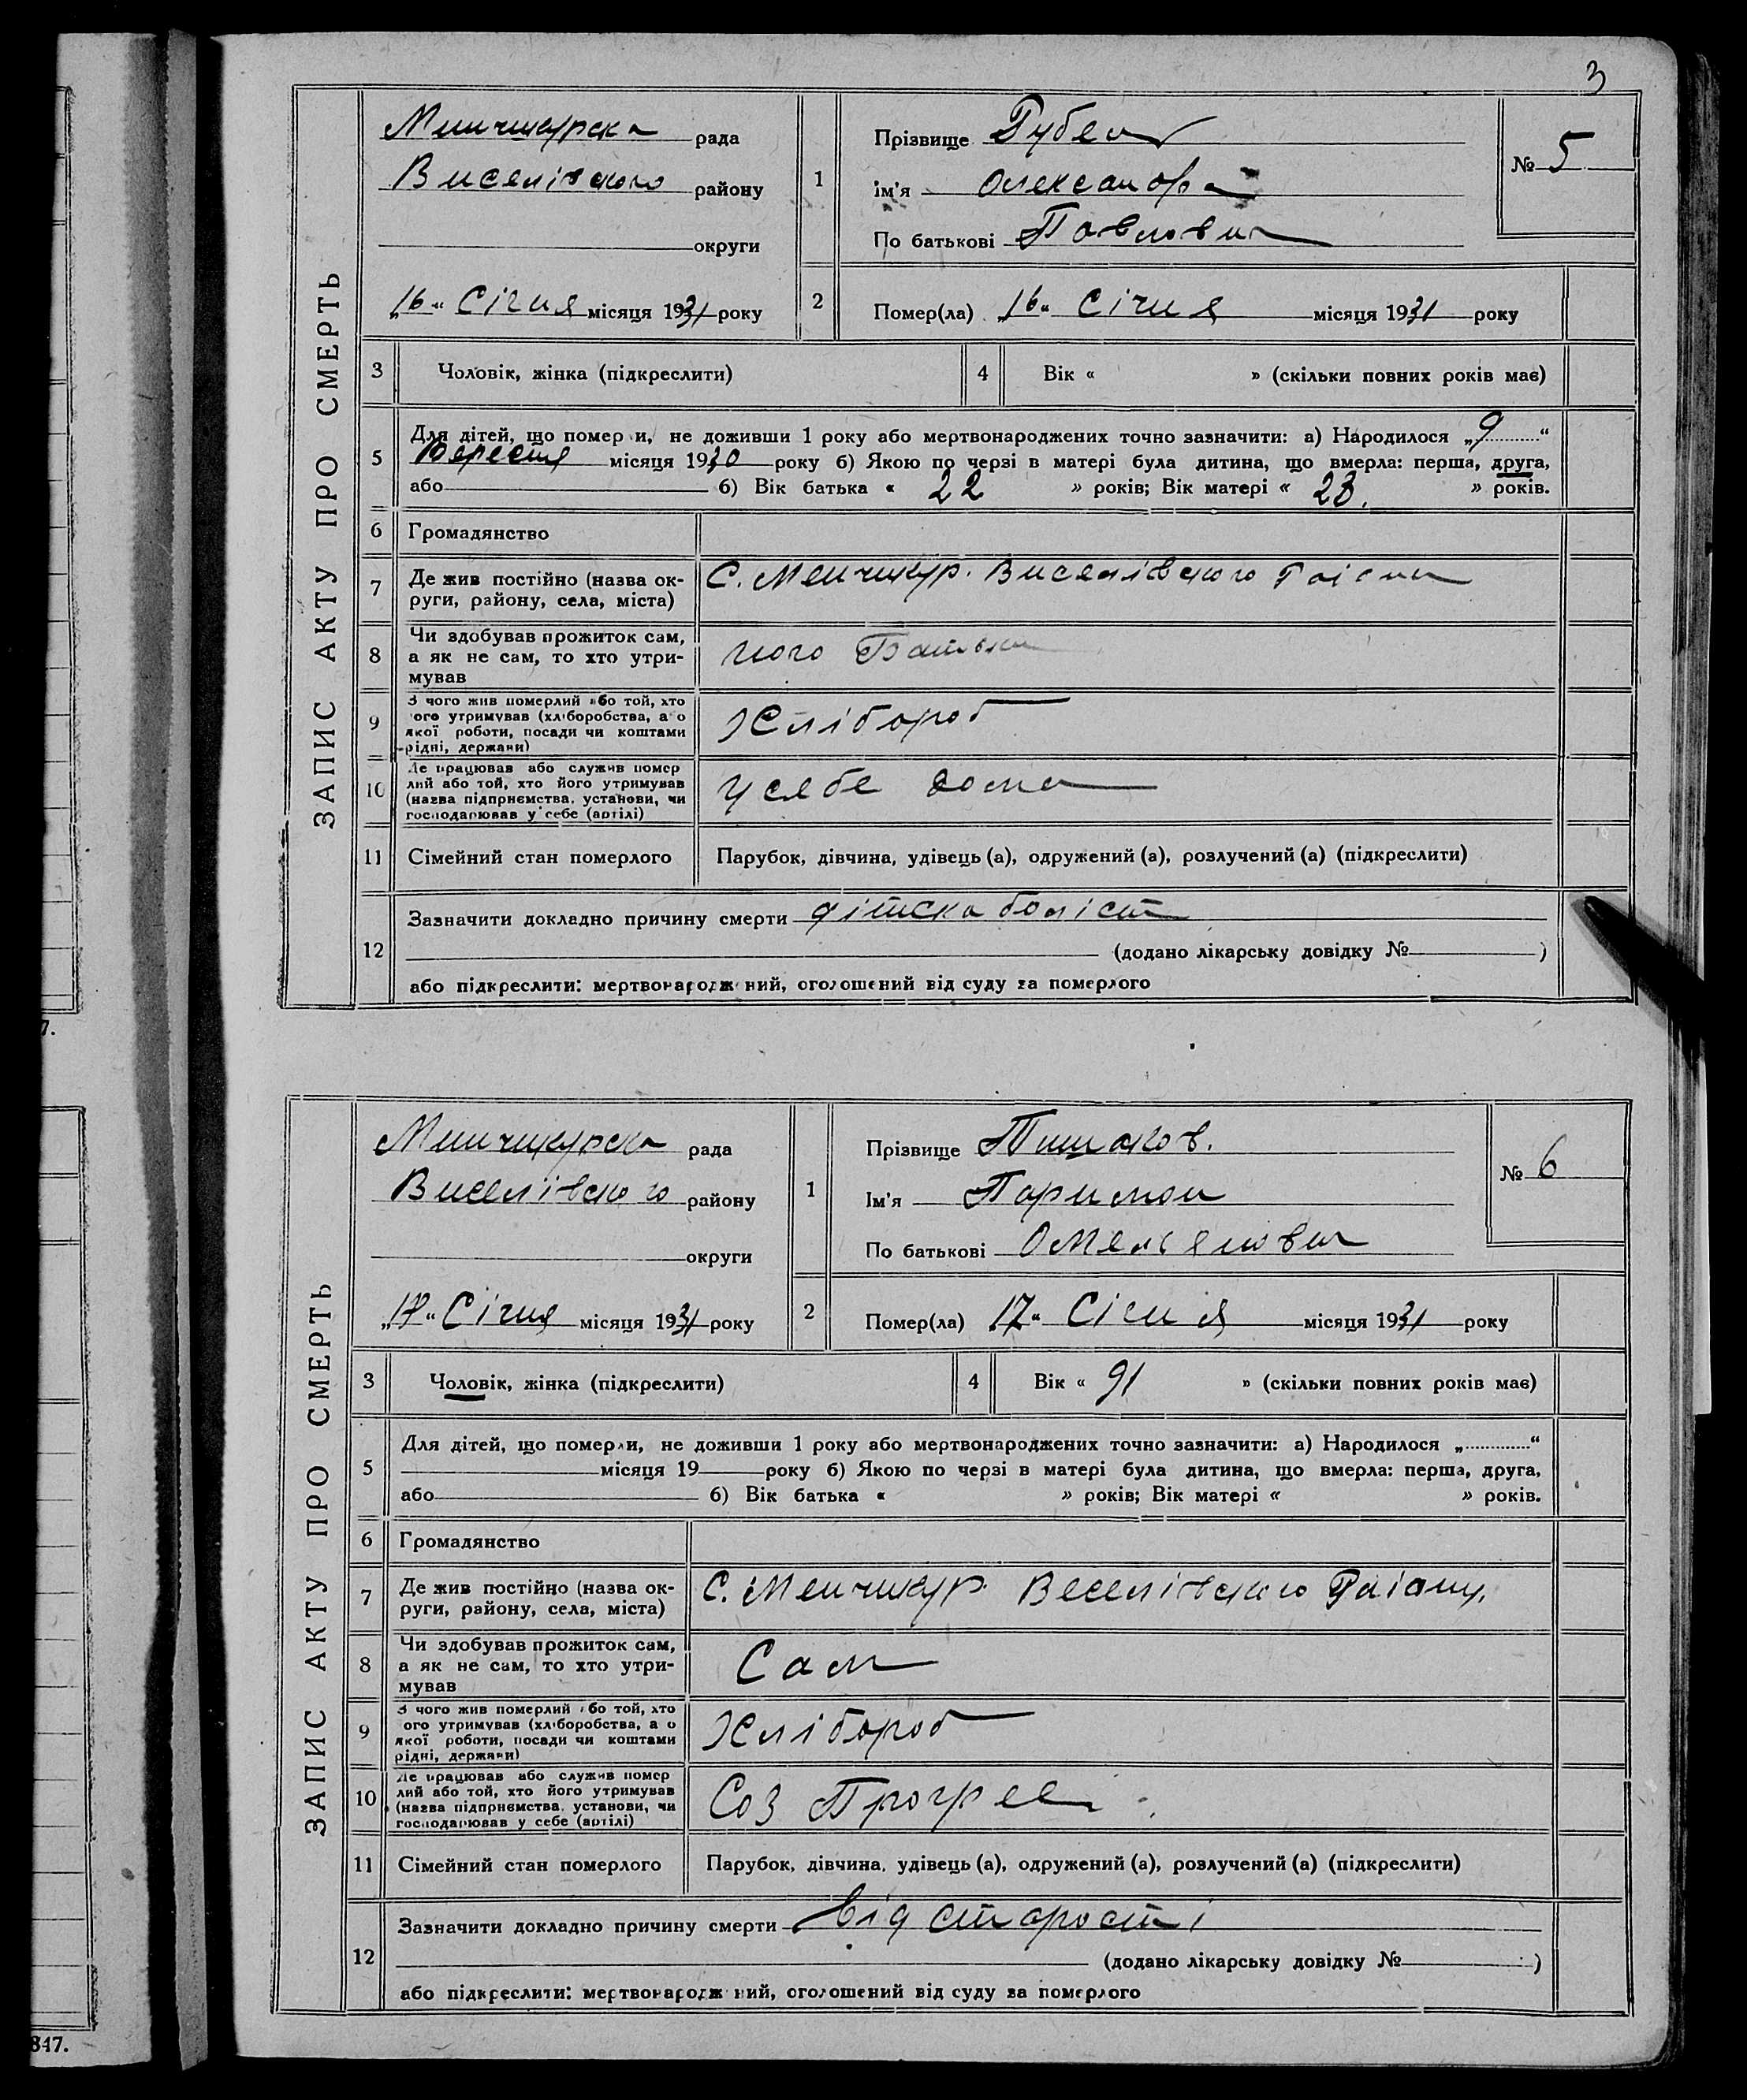 3
ЗАПИС АКТУ ПРО СМЕРТЬ
Минчикурска рада
Виселівского району
округи
„16“ Січня місяця 1931 року
1
Прізвище
Ім'я Олександра
По батькові Павлович
№ 5
2
Помер(ла) „16“ Січня місяця 1931 року
3 Чоловік, жінка (підкреслити)
4 Вік « » (скільки повних років має)
5
Для дітей, що померли, не доживши 1 року або мертвонароджених точно зазначити: а) Народилося „9“
Вересня місяця 1930 року б) Якою по черзі в матері була дитина, що вмерла: перша, друга,
або б) Вік батька « 22 » років; Вік матері « 23. » років.
6 Громадянство
7
Де жив постійно (назва ок-
руги, району, села, міста)
С. Менчикур. Виселівского Раіону
8
Чи здобував прожиток сам,
а як не сам, то хто утри-
мував
його Батьки
9
З чого жив померлий або той, хто
його утримував (хліборобства, або
якої роботи, посади чи коштами
рідні, держави)
Хлібороб
10
Де працював або служив помер
лий або той, хто його утримував
(назва підприємства, установи, чи
господарював у себе (артілі)
У себе дома
11 Сімейний стан померлого
Парубок, дівчина, удівець (а), одружений (а), розлучений (а) (підкреслити)
12
Зазначити докладно причину смерти дітска боліст
(додано лікарську довідку № )
або підкреслити: мертвонароджений, оголошений від суду за померлого
ЗАПИС АКТУ ПРО СМЕРТЬ
Минчикурска рада
Виселівского району
округи
„17“ Січня місяця 1931 року
1
Прізвище Пишаков.
Ім'я Паримон
По батькові Омелянович
№ 6
2
Помер(ла) „17“ Січня місяця 1931 року
3 Чоловік, жінка (підкреслити)
4 Вік « 91 » (скільки повних років має)
5
Для дітей, що померли, не доживши 1 року або мертвонароджених точно зазначити: а) Народилося „ “
місяця 19 року б) Якою по черзі в матері була дитина, що вмерла: перша, друга,
або б) Вік батька « » років; Вік матері « » років.
6 Громадянство
7
Де жив постійно (назва ок-
руги, району, села, міста)
С. Менчикур Веселівского Раіону.
8
Чи здобував прожиток сам,
а як не сам, то хто утри-
мував
Сам
9
З чого жив померлий або той, хто
його утримував (хліборобства, або
якої роботи, посади чи коштами
рідні, держави)
Хлібороб
10
Де працював або служив помер
лий або той, хто його утримував
(назва підприємства, установи, чи
господарював у себе (артілі)
Соз Прогрес
11 Сімейний стан померлого
Парубок, дівчина, удівець (а), одружений (а), розлучений (а) (підкреслити)
12
Зазначити докладно причину смерти Від старости
(додано лікарську довідку № )
або підкреслити: мертвонароджений, оголошений від суду за померлого
7.
847.